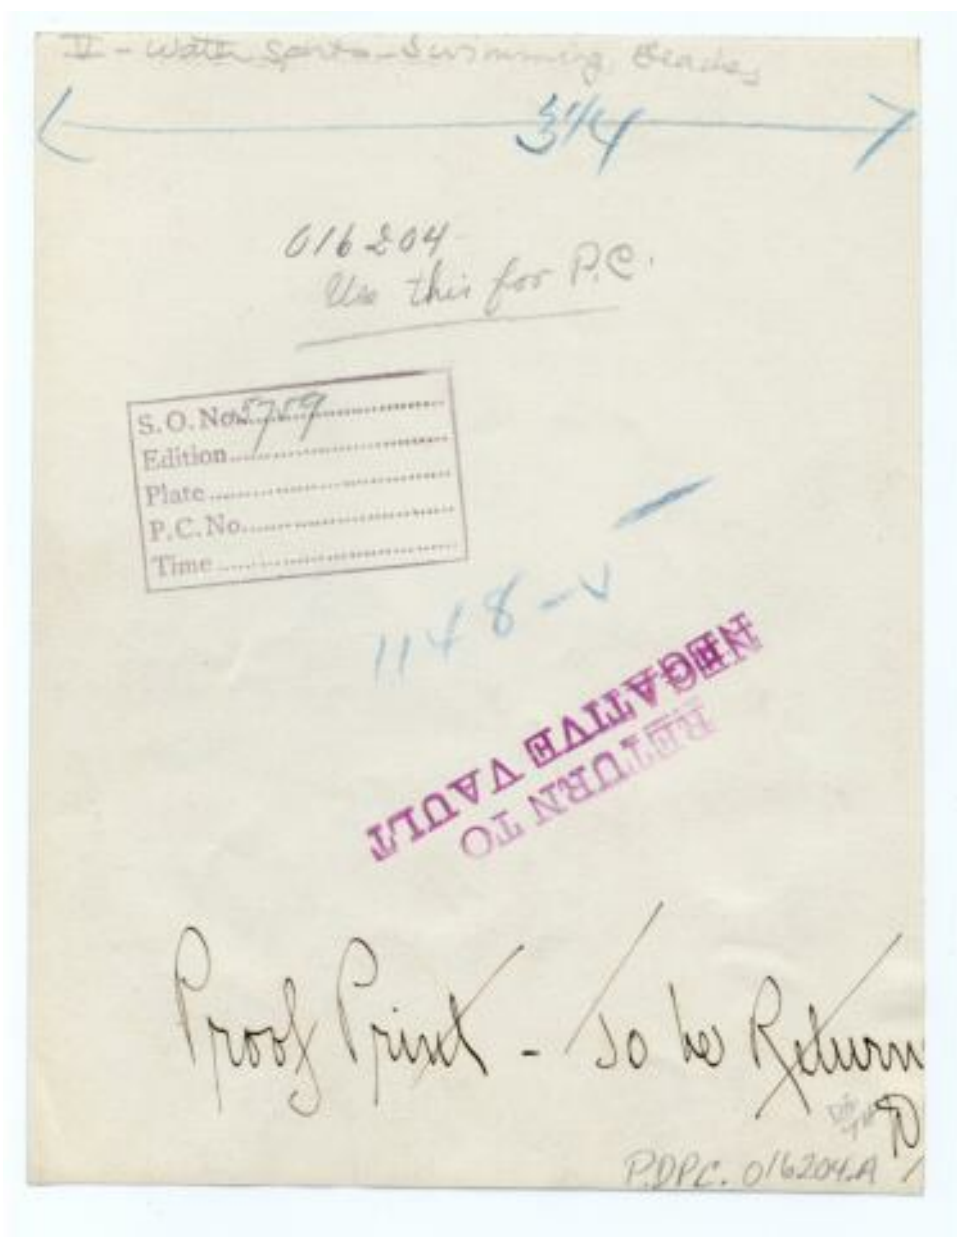 V - Water sports - Swimming, Beaches
3 1/4
016204
Use this for P.C.
S.O. No. 5759
Edition
Plate
P.C. No.
Time
1148-V
RETURN TO
NEGATIVE VAULT
Proof Print - To be Return
D
P.DPC. 016204.A